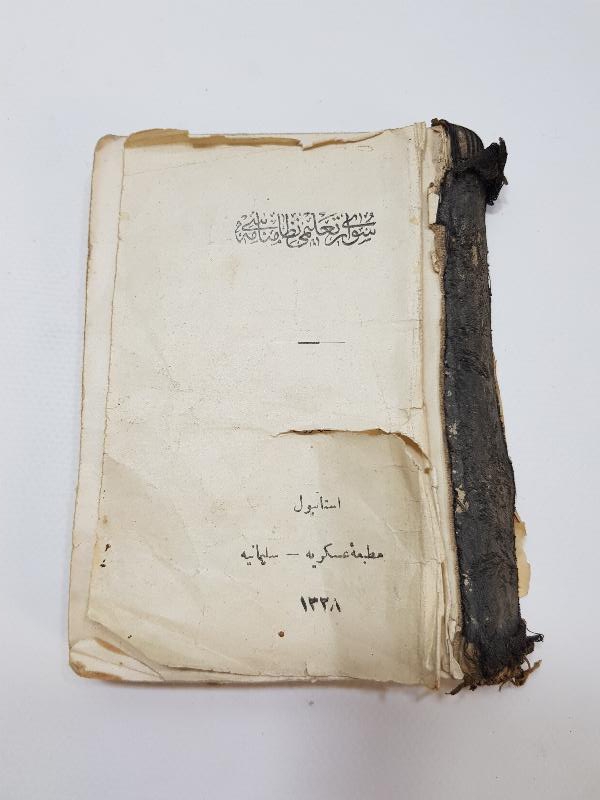 سواری تعلیمی نظامنامه سی
استانبول
مطبعهٔ عسكریه — سلیمانیه
١٣٣٨